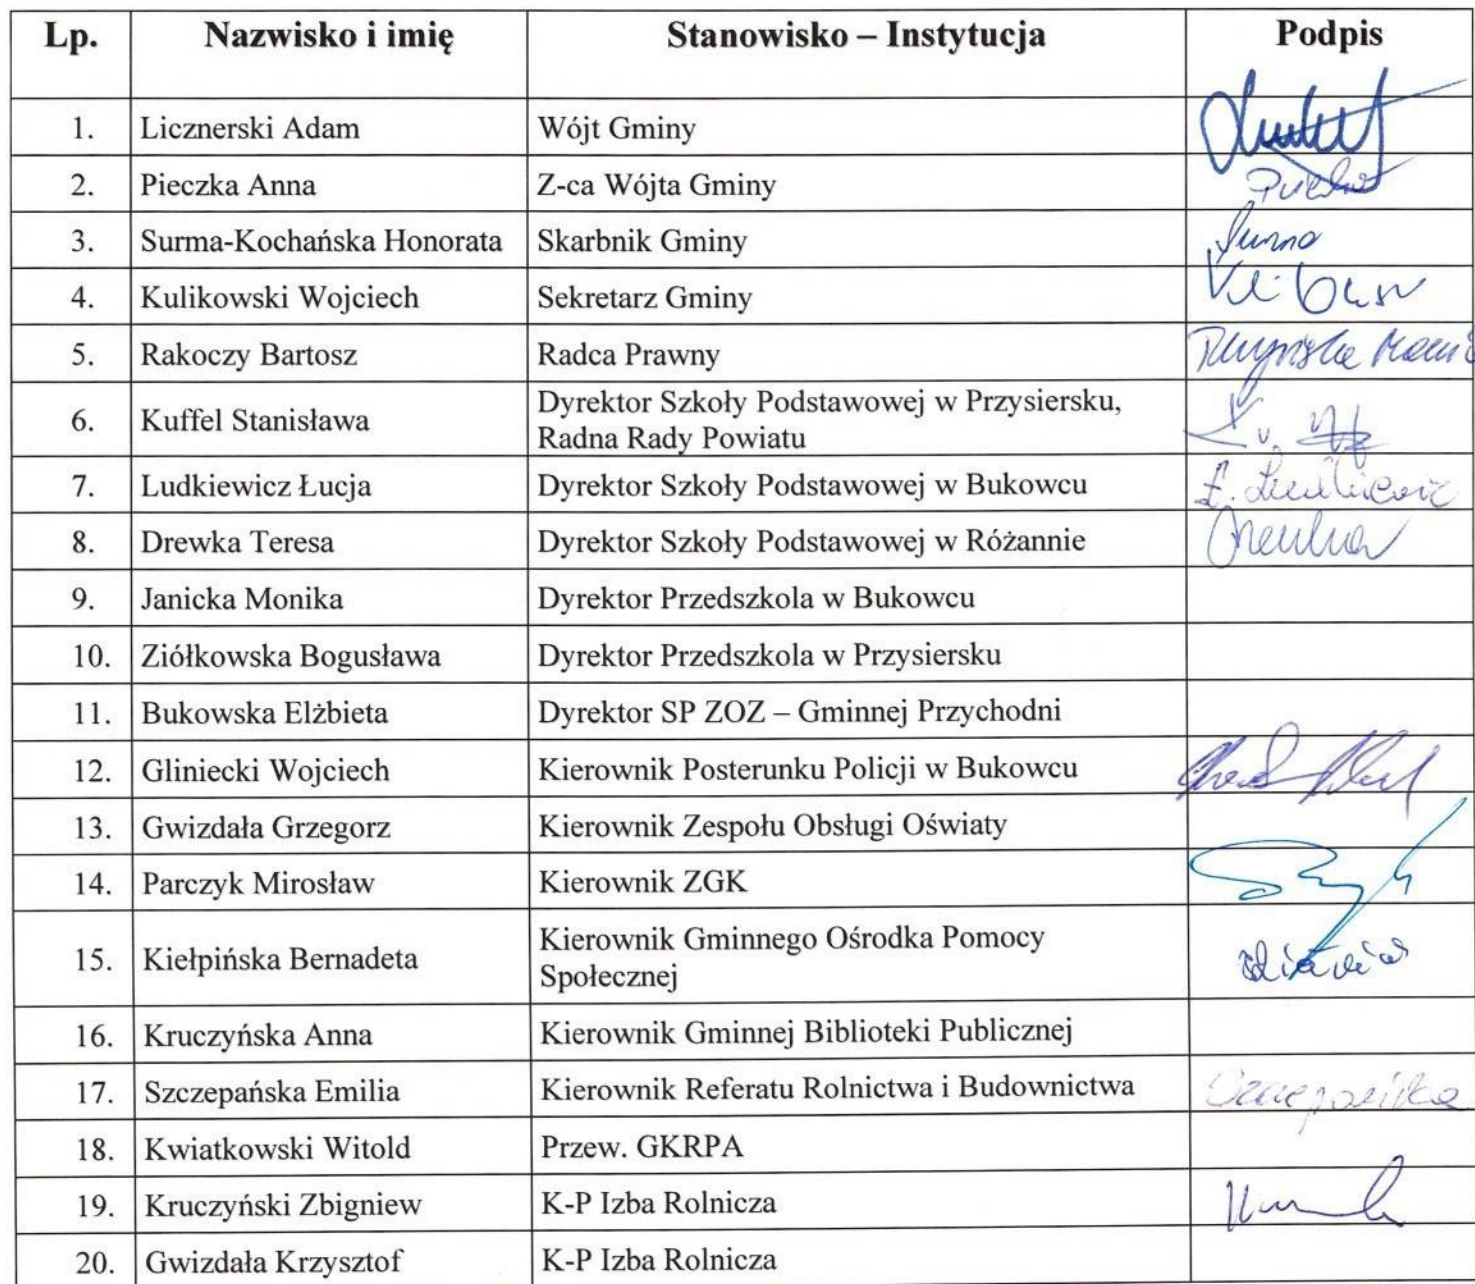 Lp. Nazwisko i imię Stanowisko – Instytucja Podpis
1. Licznerski Adam Wójt Gminy
2. Pieczka Anna Z-ca Wójta Gminy
3. Surma-Kochańska Honorata Skarbnik Gminy Surma
4. Kulikowski Wojciech Sekretarz Gminy
5. Rakoczy Bartosz Radca Prawny
6. Kuffel Stanisława Dyrektor Szkoły Podstawowej w Przysiersku,
Radna Rady Powiatu
7. Ludkiewicz Łucja Dyrektor Szkoły Podstawowej w Bukowcu Ł. Ludkiewicz
8. Drewka Teresa Dyrektor Szkoły Podstawowej w Różannie Drewka
9. Janicka Monika Dyrektor Przedszkola w Bukowcu
10. Ziółkowska Bogusława Dyrektor Przedszkola w Przysiersku
11. Bukowska Elżbieta Dyrektor SP ZOZ – Gminnej Przychodni
12. Gliniecki Wojciech Kierownik Posterunku Policji w Bukowcu
13. Gwizdała Grzegorz Kierownik Zespołu Obsługi Oświaty
14. Parczyk Mirosław Kierownik ZGK
15. Kiełpińska Bernadeta Kierownik Gminnego Ośrodka Pomocy
Społecznej
16. Kruczyńska Anna Kierownik Gminnej Biblioteki Publicznej
17. Szczepańska Emilia Kierownik Referatu Rolnictwa i Budownictwa Szczepańska
18. Kwiatkowski Witold Przew. GKRPA
19. Kruczyński Zbigniew K-P Izba Rolnicza
20. Gwizdała Krzysztof K-P Izba Rolnicza